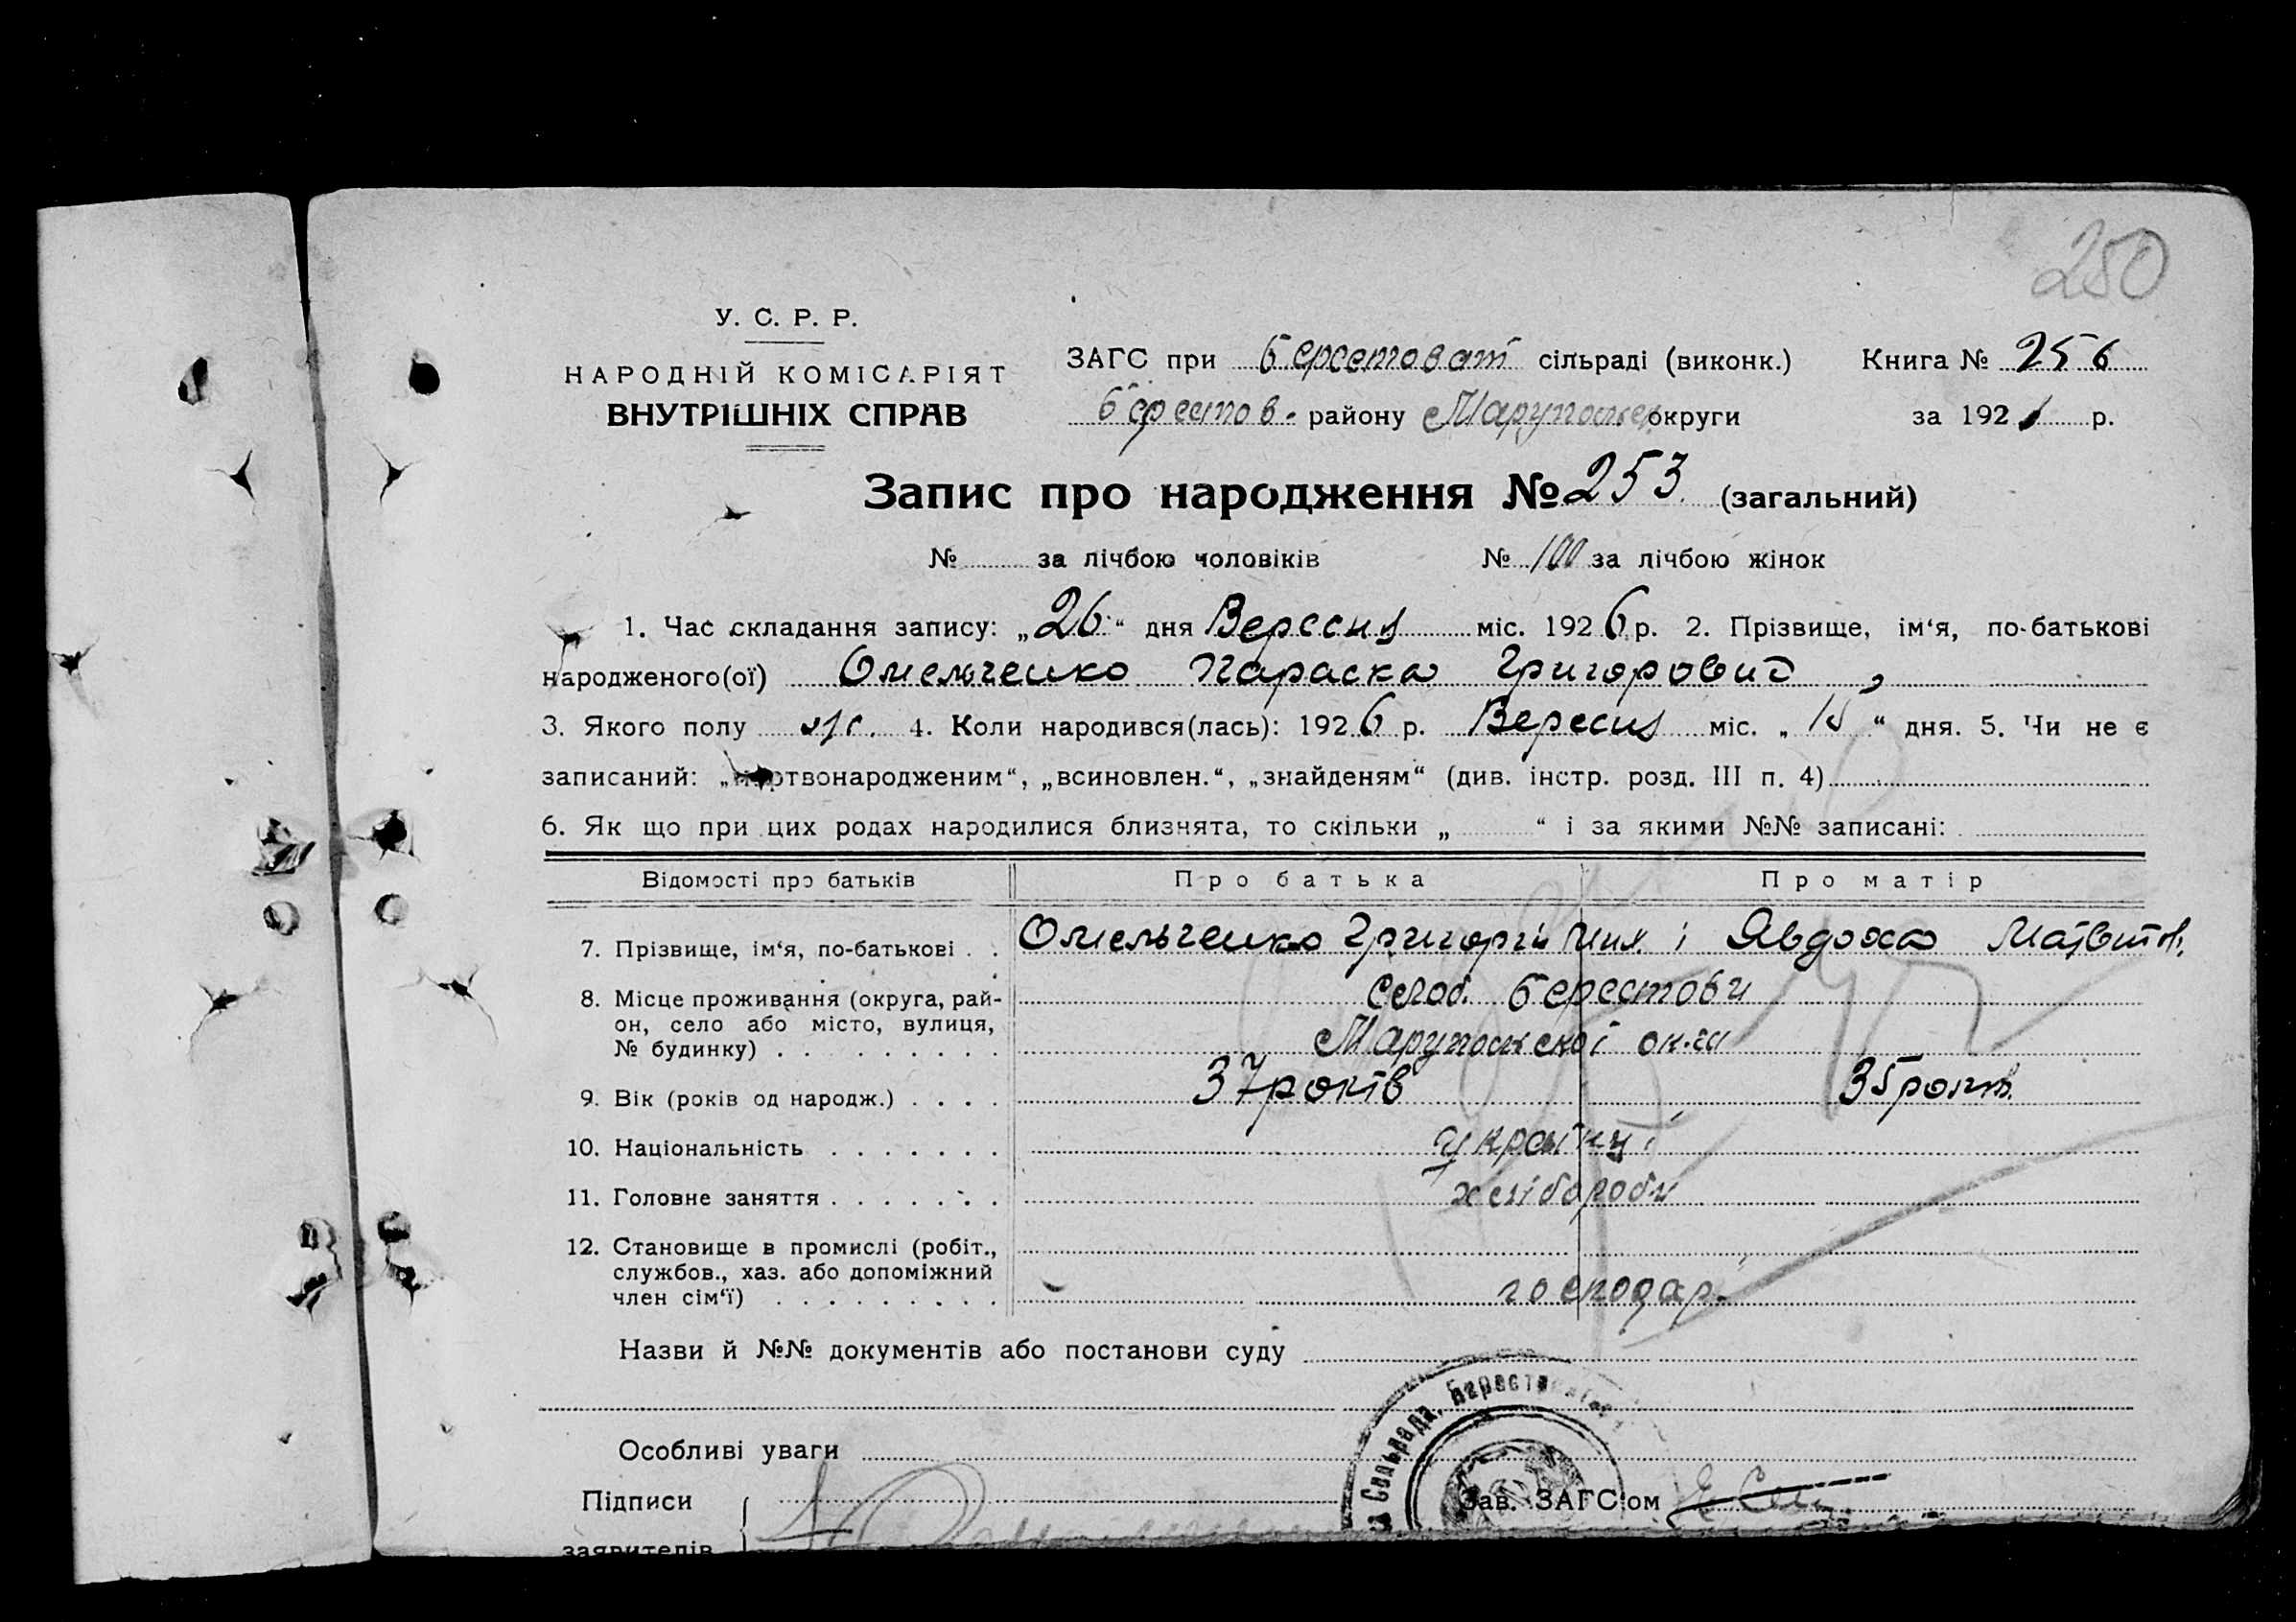 250
У. С. Р. Р.
НАРОДНІЙ КОМІСАРІЯТ
ВНУТРІШНІХ СПРАВ
ЗАГС при Берестоват сільраді (виконк.) Книга № 256
Берестов. району Маріупольс округи за 192 р.
Запис про народження № 253 (загальний)
№ за лічбою чоловіків № 100 за лічбою жінок
1. Час складання запису: „26“ дня Вересня міс. 1926 р. 2. Прізвище, ім‘я, по-батькові
народженого(ої) Омельченко Параска Григоровит
3. Якого полу ж. 4. Коли народився(лась): 1926 р. Вересня міс. „ “ дня. 5. Чи не є
записаний: „мертвонародженим“, „всиновлен.“, „знайденям“ (див. інстр. розд. III п. 4)
6. Як що при цих родах народилися близнята, то скільки „ “ і за якими №№ записані:
Відомості про батьків Про батька Про матір
7. Прізвище, ім‘я, по-батькові . . Омельченко Григорій і Явдоха Матвіів.
8. Місце проживання (округа, рай- Слоб. Берестови
он, село або місто, вулиця,
№ будинку) . . . . . . . . . Марупольскої ок-ги
9. Вік (років од народж.) . . . . 37 років 35 років.
10. Національність . . . . . . . українці
11. Головне заняття . . . . . . . хлібороби
12. Становище в промислі (робіт.,
службов., хаз. або допоміжний
член сім‘ї) . . . . . . . . . господар.
Назви й №№ документів або постанови суду
Сільрада, Берестов
Особливі уваги
Підписи Зав. ЗАГС‘ом
заявителів